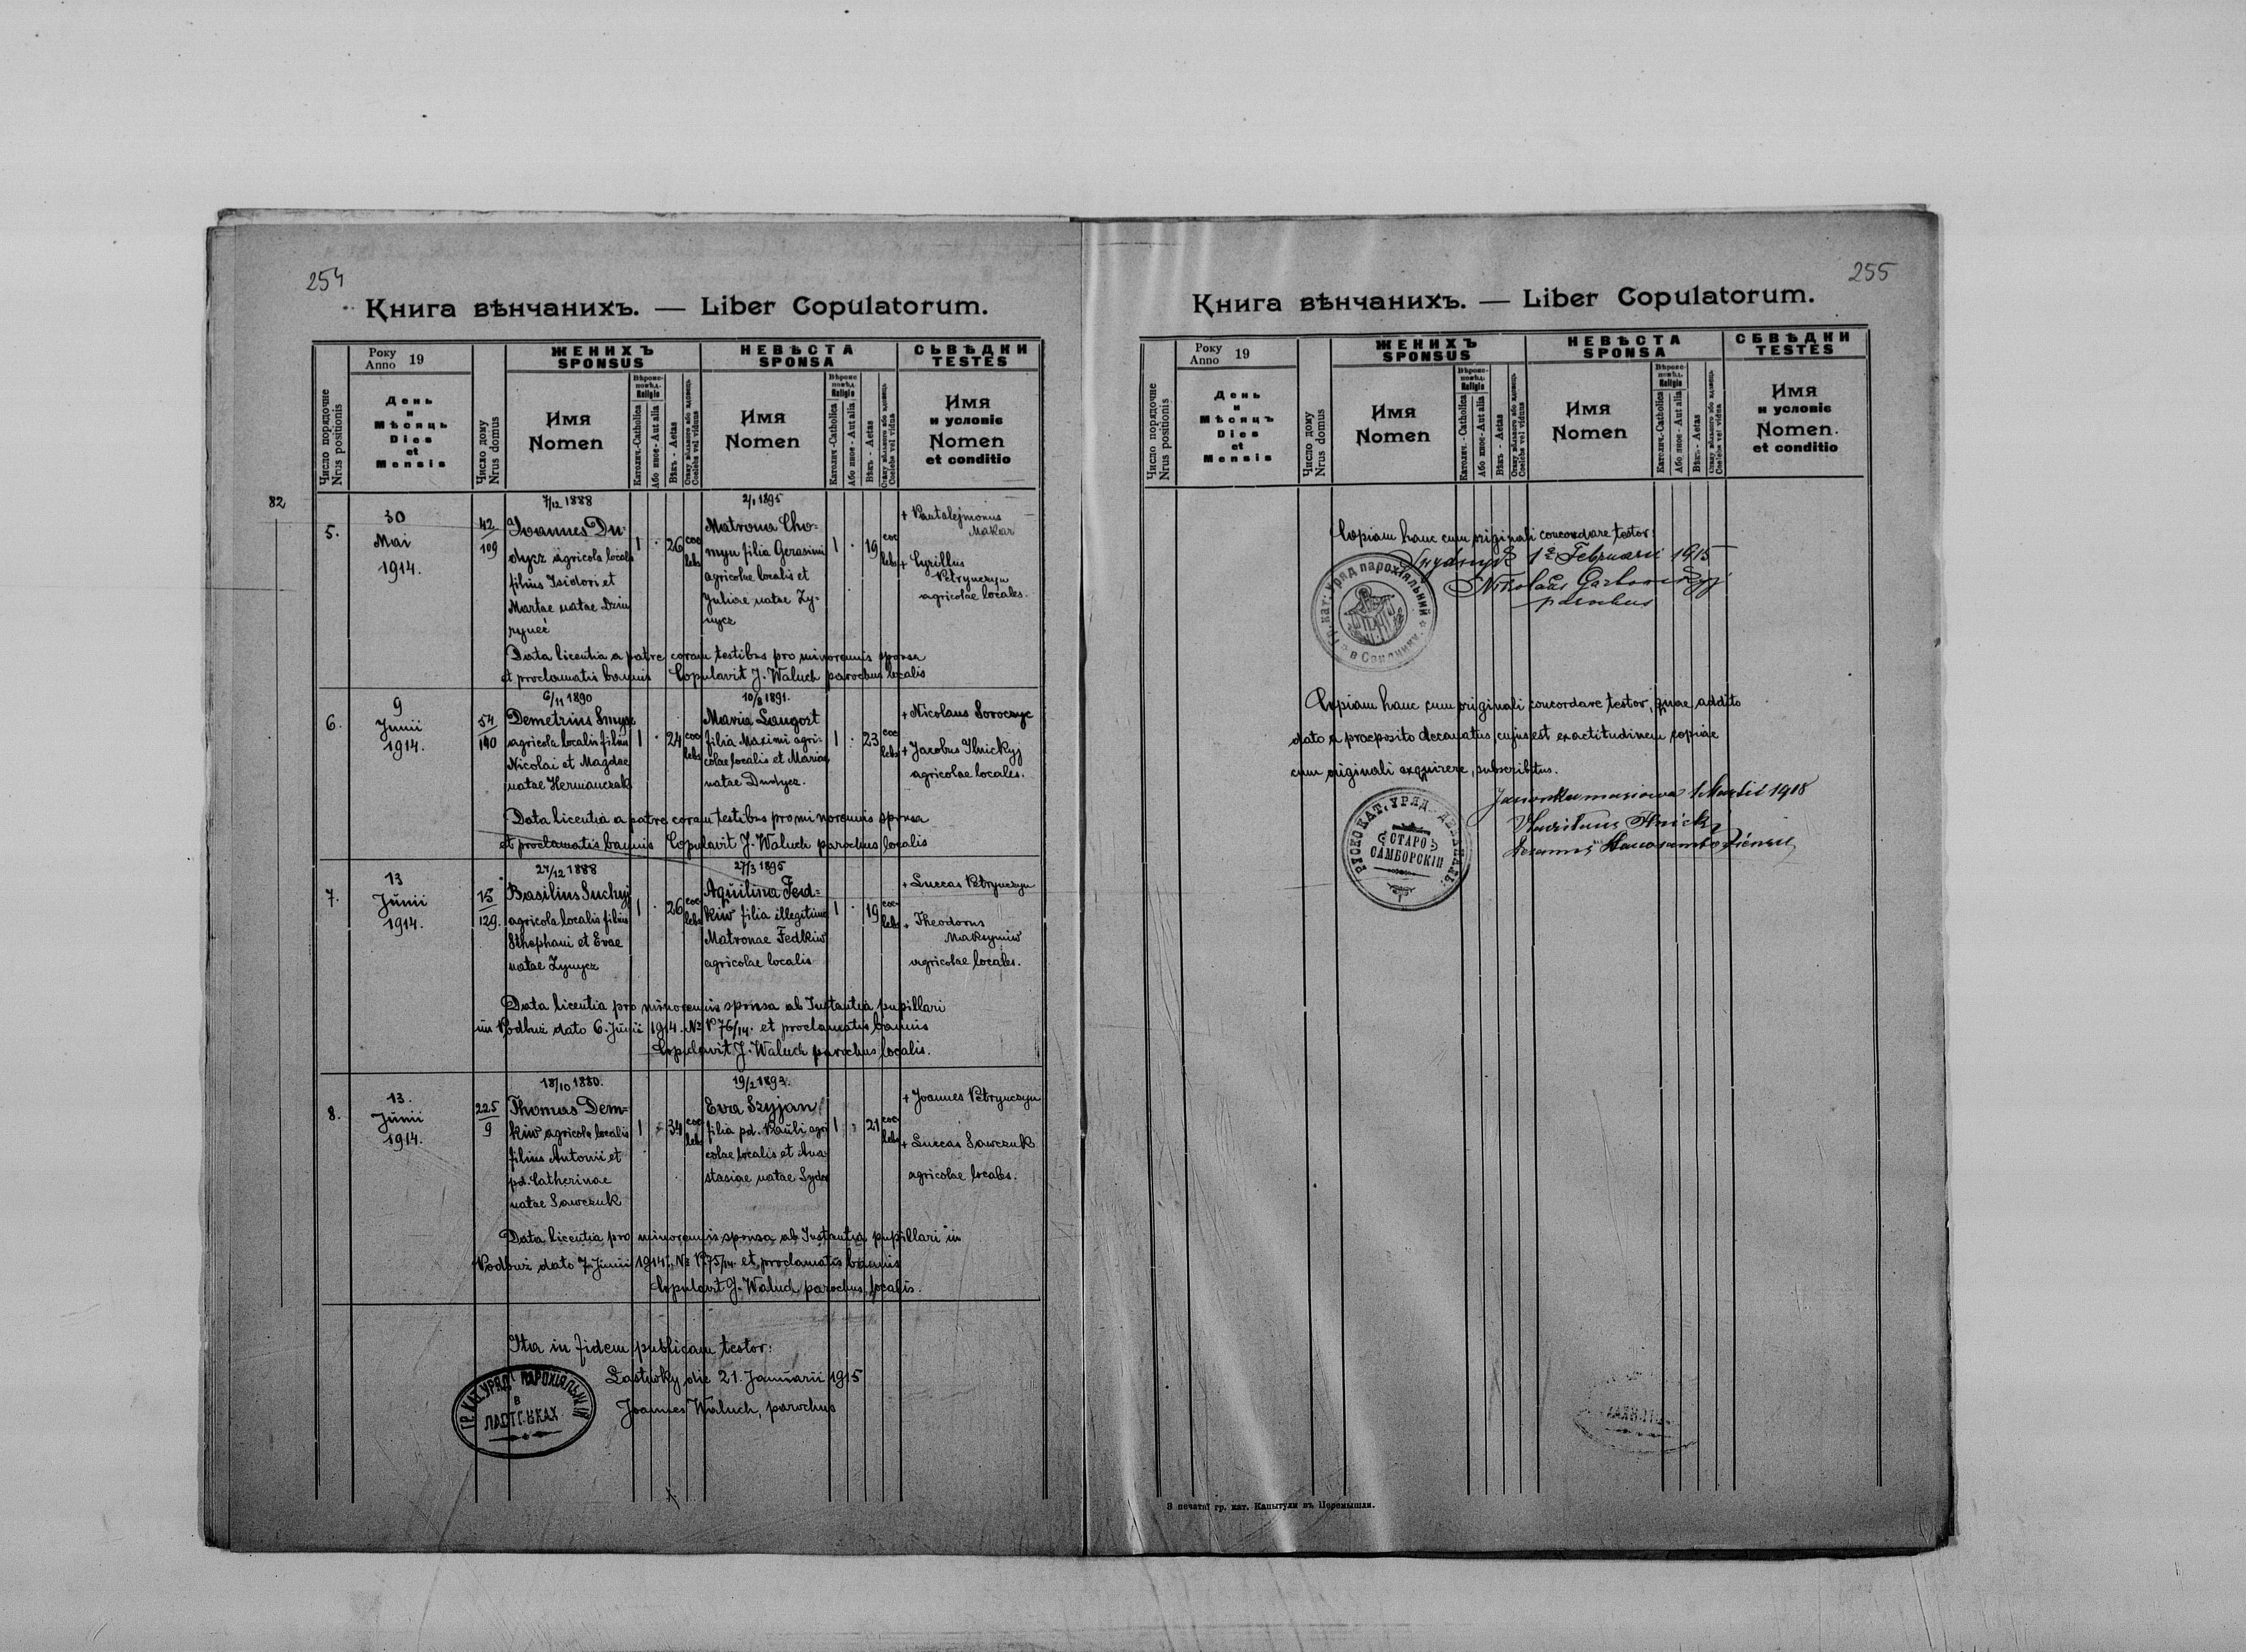 254
Книга вѣнчанихъ. — Liber Copulatorum.
Число порядочне
Nrus positionis
Року
Anno 19
День
и
Мѣсяць
Dies
et
Mensis
Число дому
Nrus domus
ЖЕНИХЪ
SPONSUS
Имя
Nomen
Вѣроис-
повѣд.
Religio
Католич.-Catholica
Або иное - Aut alia
Вѣкъ - Aetas
Coelebs vel viduus
НЕВѢСТА
SPONSA
Имя
Nomen
Вѣроис-
повѣд.
Religio
Католич.-Catholica
Або иное - Aut alia
Вѣкъ - Aetas
Coelebs vel vidua
СЬВѢДКИ
TESTES
Имя
и условіє
Nomen
et conditio
82
5.
30
Mai
1914.
42
109
7/12 1888
Joannes Du-
dycz agricola localis
filius Isidori et
Martae natae Dziu
rynec
1
26
coe
lebs
2/1 1895
Matrona Cho-
myn filia Gerasimi
agricolae localis et
Juliae natae Zy-
nycz
1
19
coe
lebs
+ Pantalejmonus
Makar
+ Cyrillus
Petrynczyn
agricolae locales.
Data licentia a patre coram testibus pro minorennis sponsa
et proclamatis bannis Copulavit J. Waluch parochus localis
6.
9
Junii
1914.
54
140
6/11 1890
Demetrius Smysz
agricola localis filius
Nicolai et Magdae
natae Hermanczak
1
24
coe
lebs
10/8 1891.
Maria Langort
filia Maximi agri-
colae localis et Mariae
natae Dmytrycz.
1
23
coe
lebs
+ Nicolaus Soroczyc
+ Jacobus Ilnickyj
agricolae locales.
Data licentia a patre coram testibus pro minorennis sponsa
et proclamatis bannis Copulavit J. Waluch parochus localis
7.
13
Junii
1914.
15
129.
27/12 1888
Basilius Suchyj
agricola localis filius
Sthephani et Evae
natae Zynycz
1
26
coe
lebs
27/3 1895
Aquilina Fed-
kiw filia illegitima
Matronae Fedkiw
agricolae localis
1
19
coe
lebs
+ Luccas Petrynczyn
+ Theodorus
Maksymiw
agricolae locales.
Data licentia pro minorennis sponsa ab Instantia pupillari
in Podbuż dato 6. Junii 1914. № P 76/14. et proclamatis bannis
Copulavit J. Waluch parochus localis.
8.
13.
Junii
1914.
225
9
18/10 1880.
Thomas Dem-
kiw agricola localis
filius Antonii et
pd. Catherinae
natae Sawczuk
1
34
coe
lebs
19/2 1893.
Eva Szyjan
filia pd. Pauli agri
colae localis et Ana
stasiae natae Sydor
1
21
coe
lebs
+ Joannes Petrynczyn
+ Luccas Sawczuk
agricolae locales.
Data licentia pro minorennis sponsa ab Instantia pupillari in
Podbuż dato 7. Junii 1914. № P 75/14. et proclamatis bannis
Copulavit J. Waluch parochus localis.
Ita in fidem publicam testor:
Lastiwky die 21. Januarii 1915
Joannes Waluch, parochus
ГР. КАТ. УРЯД ПАРОХІЯЛЬНИЙ
В
ЛАСТІВКАХ
255
Книга вѣнчанихъ. — Liber Copulatorum.
Число порядочне
Nrus positionis
Року
Anno 19
День
и
Мѣсяцъ
Dies
et
Mensis
Число дому
Nrus domus
ЖЕНИХЪ
SPONSUS
Имя
Nomen
Вѣроис-
повѣд.
Religio
Католич.-Catholica
Або иное - Aut alia
Вѣкъ - Aetas
Coelebs vel viduus
НЕВѢСТА
SPONSA
Имя
Nomen
Вѣроис-
повѣд.
Religio
Католич.-Catholica
Або иное - Aut alia
Вѣкъ - Aetas
Coelebs vel vidua
СБВѢДКИ
TESTES
Имя
и условіє
Nomen.
et conditio
Copiam hanc cum originali concordare testor:
1 Februarii 1915
Nikolaus
parochus
Гр. кат. Уряд парохіяльний
Copiam hanc cum originali concordare testor, quae addito
dato a praeposito decanatus, cujus est exactitudinem copiae
cum originali exquirere, subscribitur.
1 Martii 1918
РУСКО КАТ. УРЯД ДЕКАНАЛЬ.
СТАРО
САМБОРСКІЙ
З печатнѣ гр. кат. Капитули въ Перемышли.